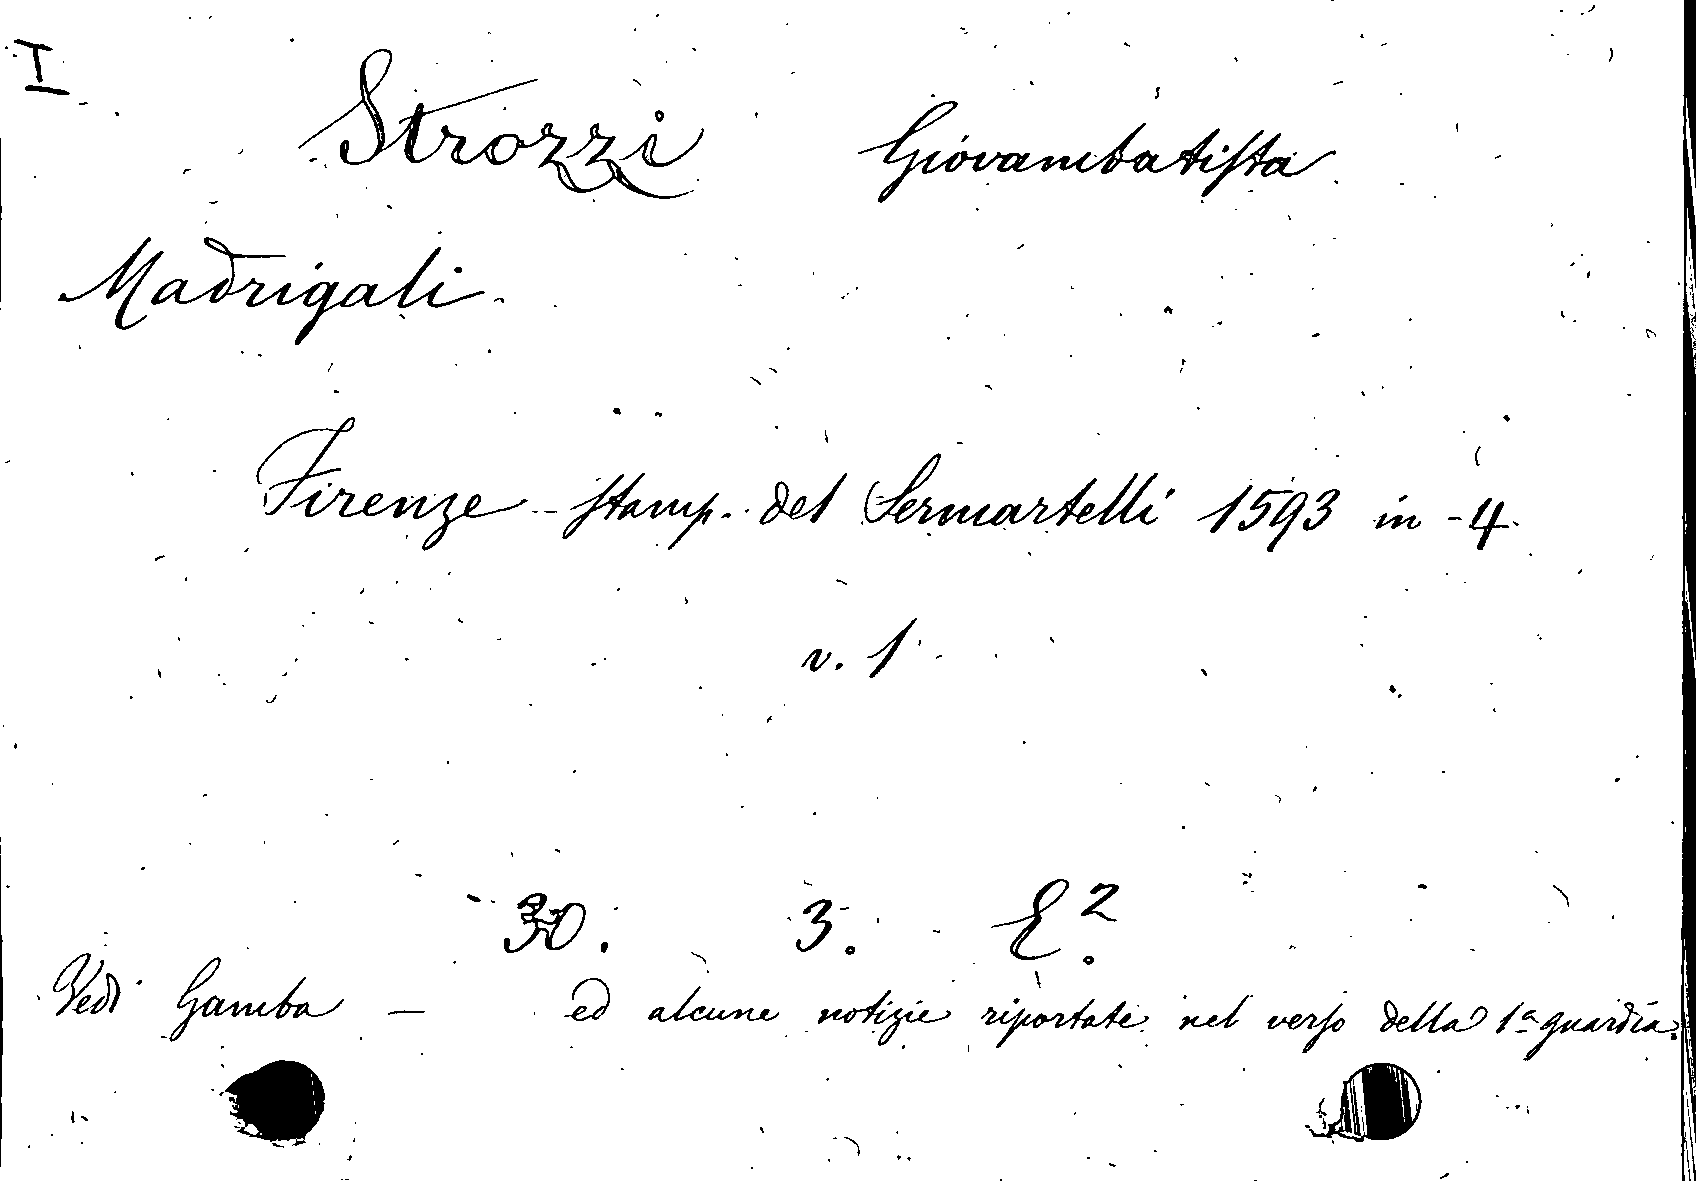 I
Strozzi Giovambatista
Madrigali
Firenze - stamp. del Sermartelli 1593 in-4
v. 1
30. 3. E².
Vedi Gamba — ed alcune notizie riportate nel verso della 1ª guardia.